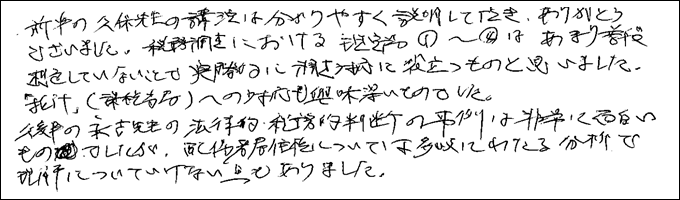 前半の久保先生の講演は分かりやすく説明して頂き、ありがとう
ございました。税務調査における 否認 ①〜④は あまり普段
想定していないことで 実務的に 税務対応に 役立つものと思いました。
(課税当局)への対応も興味深いものでした。
後半の永吉先生の法律的・税務的判断の事例は非常に面白い
ものでしたが、配偶者居住権については多岐にわたる分析で
理解についていけない点もありました。